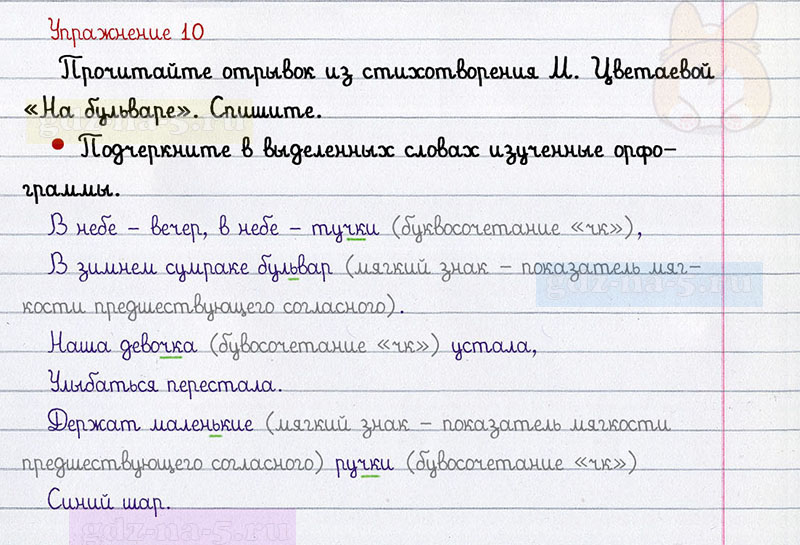 Упражнение 10
Прочитайте отрывок из стихотворения М. Цветаевой
«На бульваре». Спишите.
• Подчеркните в выделенных словах изученные орфо-
граммы.
В небе – вечер, в небе – тучки (буквосочетание «чк»),
В зимнем сумраке бульвар (мягкий знак – показатель мяг-
кости предшествующего согласного).
Наша девочка (бувосочетание «чк») устала,
Улыбаться перестала.
Держат маленькие (мягкий знак – показатель мягкости
предшествующего согласного) ручки (бувосочетание «чк»)
Синий шар.
gdz-na-5.ru
gdz-na-5.ru
gdz-na-5.ru